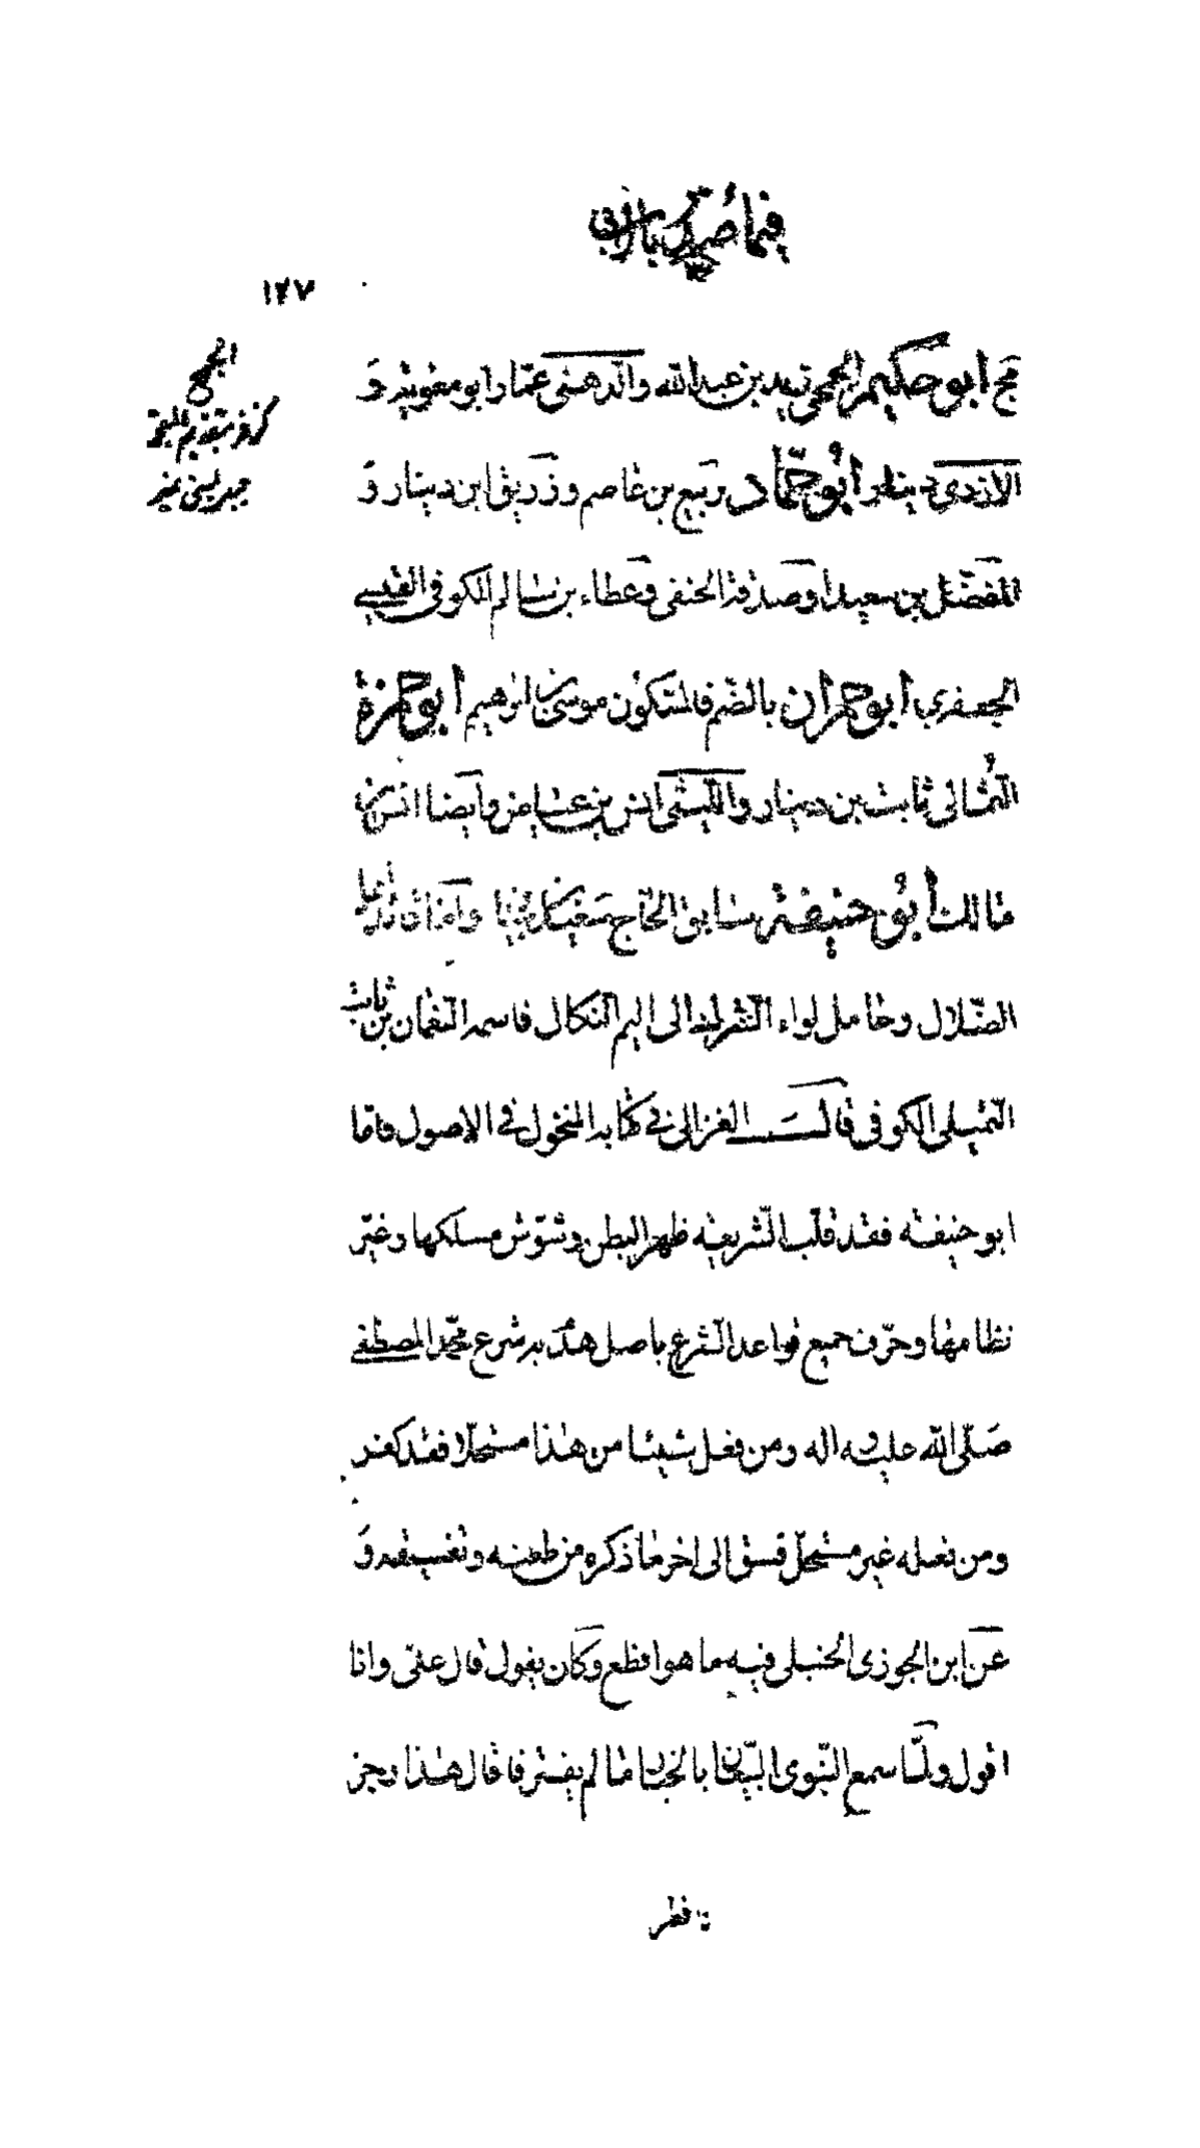 فيما صدر بابي
١٢٧
مج ابو حكيم الجمحى زيد بن عبد الله والدهنى عمار ابو معوية و
الجمح
الازدى دينار ابو حماد ربيع بن عاصم وزريق ابن دينار و
المفضل بن سعيد او صدقة الحنفى وعطاء بن سالم الكوفى القيسى
الجعفرى ابو حمران بالضم فالسكون موسى بن ابرهيم ابو حمزة
الثمالى ثابت بن دينار والليثى انس بن عياض وايضا انس بن
مالك ابو حنيفة سابق الحاج سعيد بن بيان واما قائد اهل
الضلال وحامل لواء الشر الى اليم النكال فاسمه النعمان بن ثابت
التيملى الكوفى قال الغزالى فى كتابه المنخول فى الاصول فاما
ابو حنيفة فقد قلب الشريعة ظهر البطن وشوش مسلكها وغير
نظامها وحرف جميع قواعد الشرع باصل هدم به شرع محمد المصطفى
صلى الله عليه واله ومن فعل شيئا من هذا مستحلا فقد كفر
ومن فعله غير مستحل فسق الى اخر ما ذكره من طعنه وتفسيقه و
عن ابن الجوزى الحنبلى فيه ما هو افظع وكان يقول قال على وانا
اقول ولما سمع النبوى البيعان بالخيار ما لم يفترقا قال هذا رجز